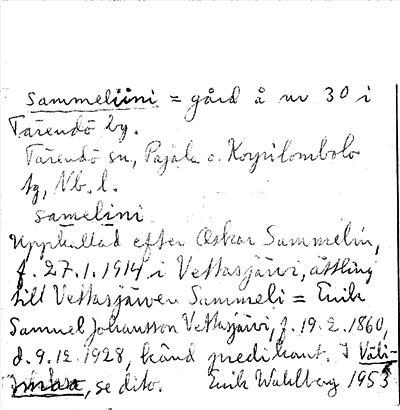 Sammeliini = gård å nr 30 i
Tärendö by.
Tärendö sn, Pajala o. Korpilombolo
tg, Nb. l.
samelini
Uppkallad efter Oskar Sammelin,
f. 27.1.1914 i Vettasjärvi, ättling
till Vettasjärven Sammeli = Erik
Samuel Johansson Vettasjärvi, f. 19.2.1860,
d. 9.12.1928, känd predikant. I Väli-
, se dito. Erik Wahlberg 1953